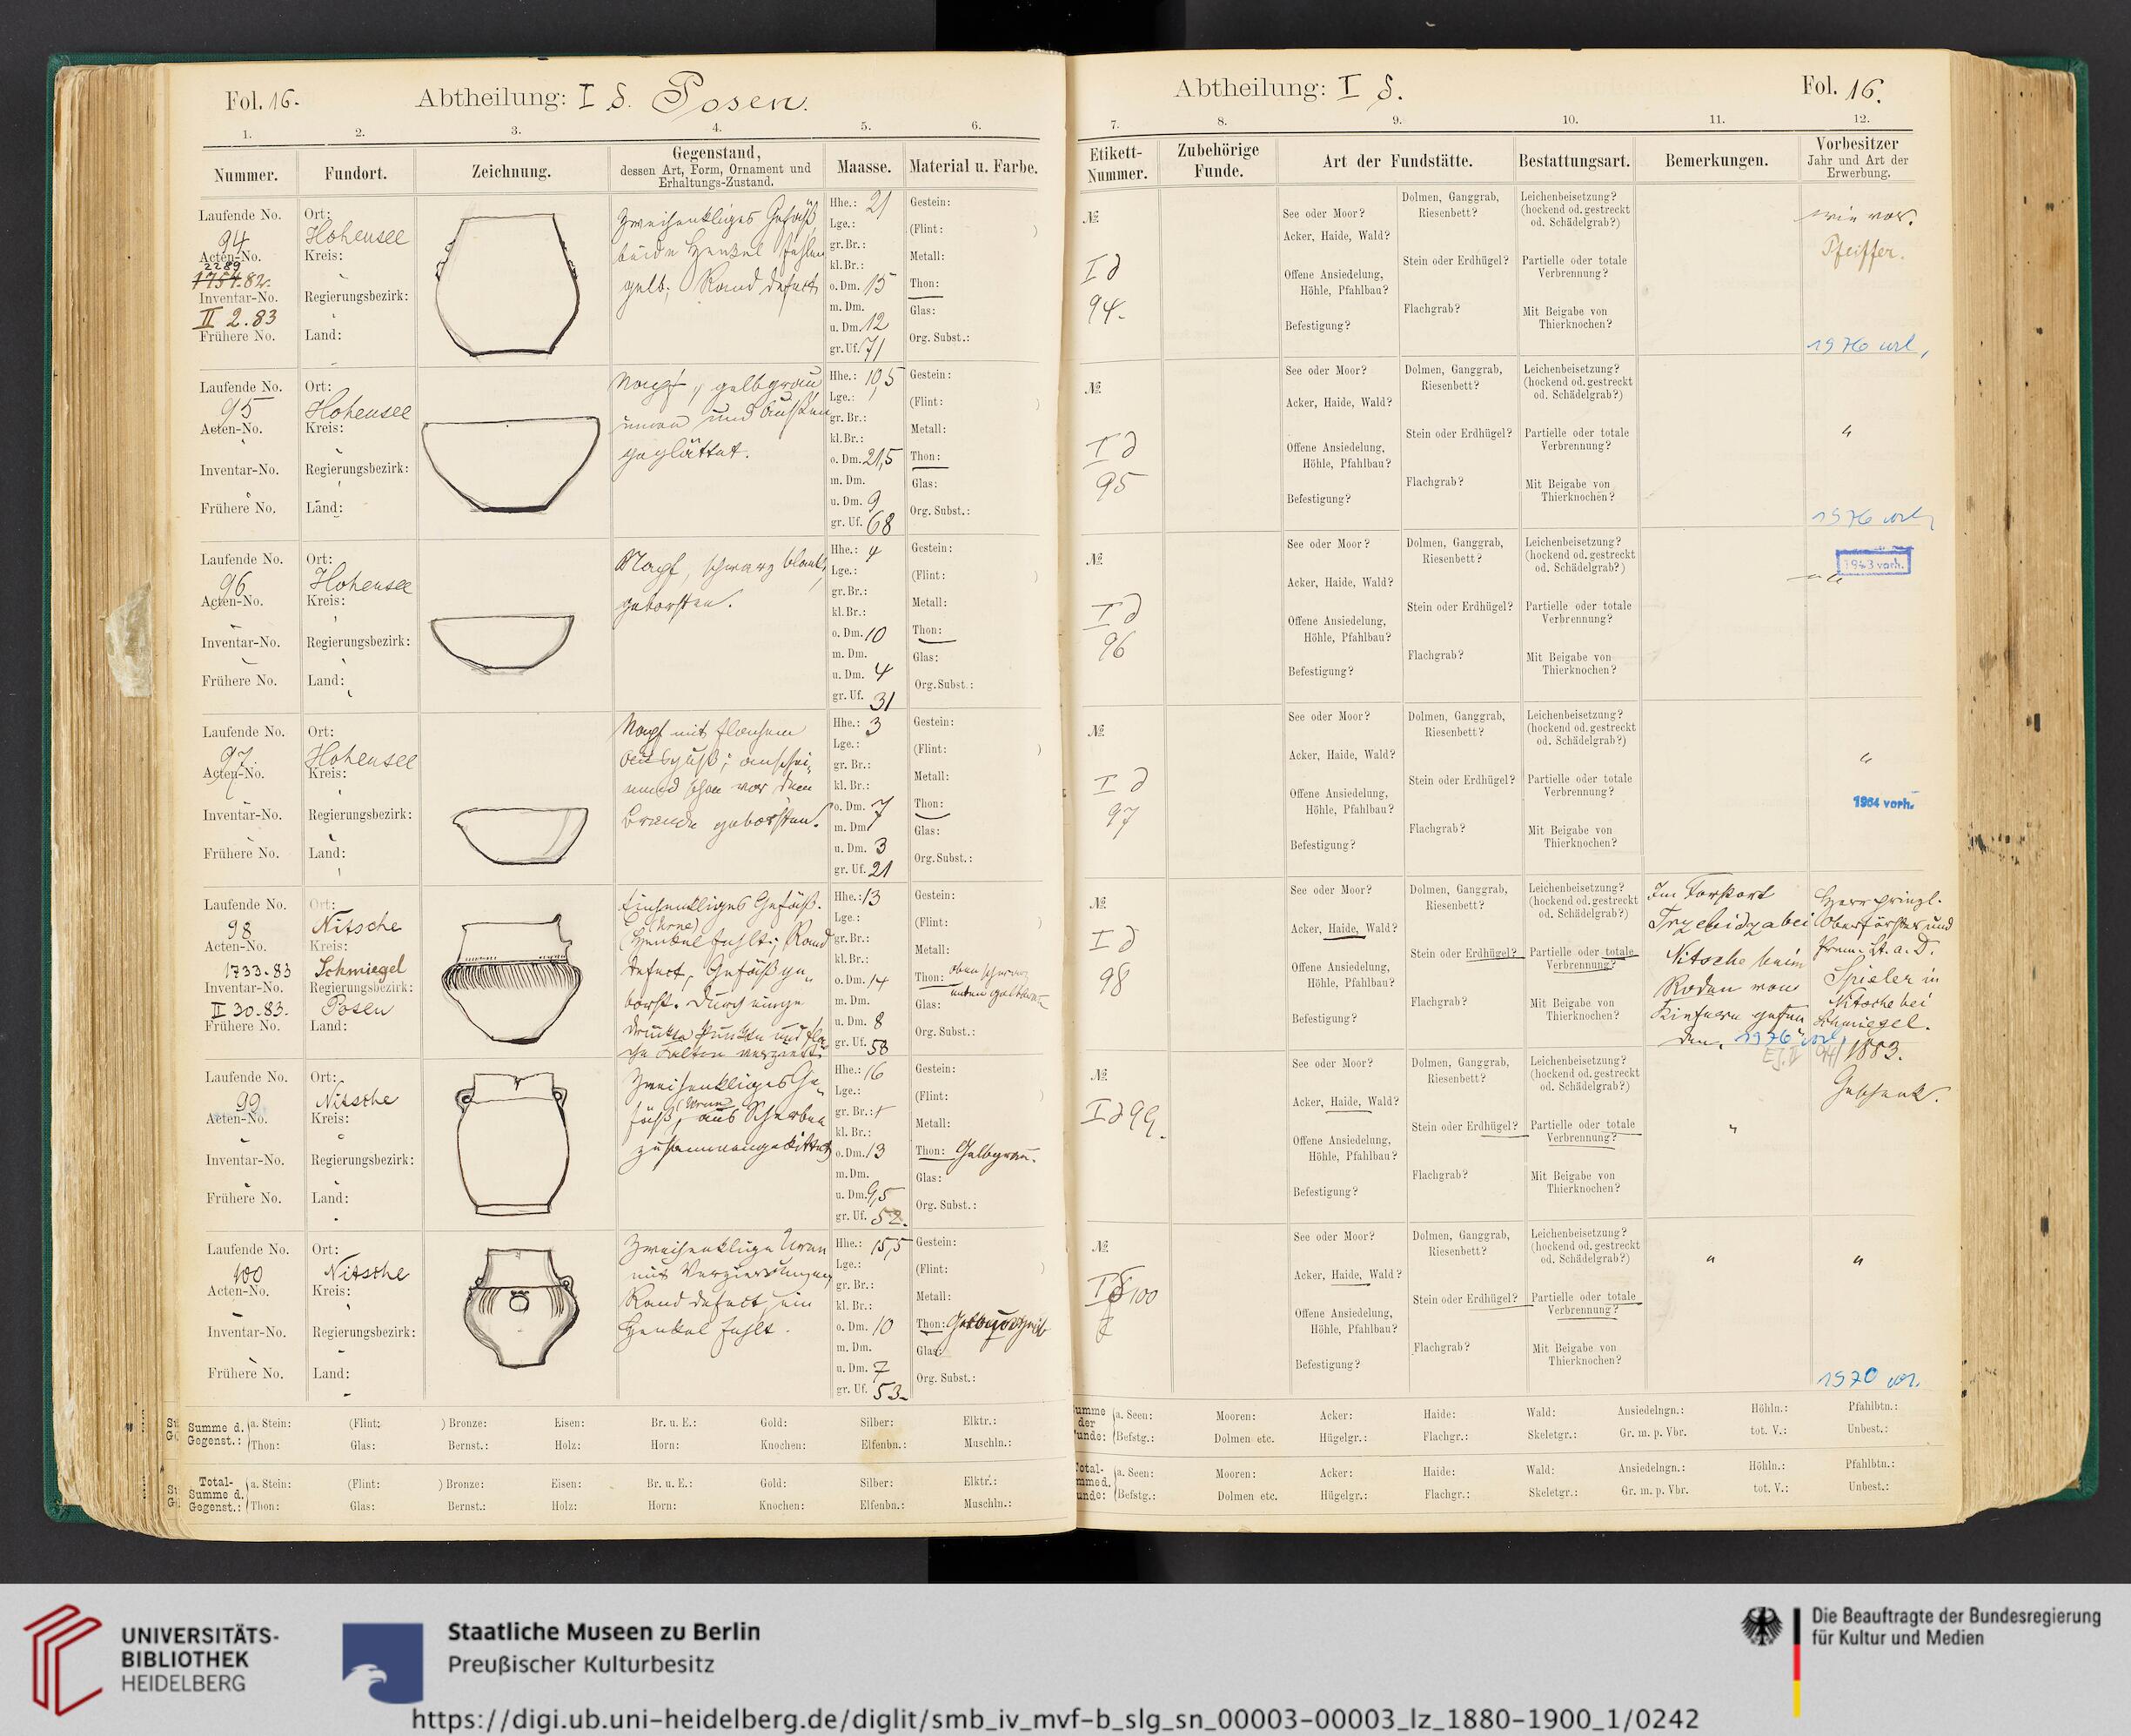 Fol. 16.
Abtheilung: I d. Posen.
1. 2. 3. 4. 5. 6.
Nummer.
Fundort.
Zeichnung.
Gegenstand,
dessen Art, Form, Ornament und
Erhaltungs-Zustand.
Maasse.
Material u. Farbe.
Laufende No.
94
Acten-No.
2289
1754.82.
Inventar-No.
II 2.83
Frühere No.
Ort:
Hohensee
Kreis:
Regierungsbezirk:
Land:
Zweihenkliges Gefäß,
beide Henkel fehlen
gelb; Rand defect
Hhe.: 21
Lge.:
gr. Br.:
kl. Br.:
o. Dm. 15
m. Dm.
u. Dm. 12
gr. Uf. 71
Gestein:
(Flint: )
Metall:
Thon:
Glas:
Org. Subst.:
Laufende No.
95
Acten-No.
Inventar-No.
Frühere No.
Ort:
Hohensee
Kreis:
Regierungsbezirk:
Land:
Napf, gelbgrau
innen und außen
geglättet.
Hhe.: 10,5
Lge.:
gr. Br.:
kl. Br.:
o. Dm. 21,5
m. Dm.
u. Dm. 9
gr. Uf. 68
Gestein:
(Flint: )
Metall:
Thon:
Glas:
Org. Subst.:
Laufende No.
96
Acten-No.
Inventar-No.
Frühere No.
Ort:
Hohensee
Kreis:
Regierungsbezirk:
Land:
Napf, schwarz blank,
geborsten.
Hhe.: 4
Lge.:
gr. Br.:
kl. Br.:
o. Dm. 10
m. Dm.
u. Dm. 4
gr. Uf. 31
Gestein:
(Flint: )
Metall:
Thon:
Glas:
Org. Subst.:
Laufende No.
97.
Acten-No.
Inventar-No.
Frühere No.
Ort:
Hohensee
Kreis:
Regierungsbezirk:
Land:
Napf mit flachem
Ausguß; anschei-
nend schon vor dem
Brande geborsten.
Hhe.: 3
Lge.:
gr. Br.:
kl. Br.:
o. Dm. 7
m. Dm.
u. Dm. 3
gr. Uf. 21
Gestein:
(Flint: )
Metall:
Thon:
Glas:
Org. Subst.:
Laufende No.
98
Acten-No.
1733.83
Inventar-No.
II 30.83.
Frühere No.
Ort:
Nitsche
Kreis:
Schmiegel
Regierungsbezirk:
Posen
Land:
Einhenkliges Gefäß.
(Urne)
Henkel fehlt; Rand
defect, Gefäß ge-
borst. Durch einge-
drückte Punkte und fla-
che Falten verziert.
Hhe.: 13
Lge.:
gr. Br.:
kl. Br.:
o. Dm. 14
m. Dm.
u. Dm. 8
gr. Uf. 58
Gestein:
(Flint: )
Metall:
Thon: oben schwarz
unten gelbbraun
Glas:
Org. Subst.:
Laufende No.
99
Acten-No.
Inventar-No.
Frühere No.
Ort:
Nitsche
Kreis:
Regierungsbezirk:
Land:
Zweihenkliges Ge-
fäß, (Urne) aus Scherben
zusammengekittet
Hhe.: 16
Lge.:
gr. Br.:
kl. Br.:
o. Dm. 13
m. Dm.
u. Dm. 9,5
gr. Uf. 52.
Gestein:
(Flint: )
Metall:
Thon: Gelbgrau.
Glas:
Org. Subst.:
Laufende No.
100
Acten-No.
Inventar-No.
Frühere No.
Ort:
Nitsche
Kreis:
Regierungsbezirk:
Land:
Zweihenklige Urne
mit Verzierungen
Rand defect, ein
Henkel fehlt.
Hhe.: 15,5
Lge.:
gr. Br.:
kl. Br.:
o. Dm. 10
m. Dm.
u. Dm. 7
gr. Uf. 53.
Gestein:
(Flint: )
Metall:
Thon:
Glas:
Org. Subst.:
Summe d. Gegenst.: a. Stein: (Flint: ) Bronze: Eisen: Br. u. E.: Gold: Silber: Elktr.:
Thon: Glas: Bernst.: Holz: Horn: Knochen: Elfenbn.: Muschln.:
Total-Summe d. Gegenst.: a. Stein: (Flint: ) Bronze: Eisen: Br. u. E.: Gold: Silber: Elktr.:
Thon: Glas: Bernst.: Holz: Horn: Knochen: Elfenbn.: Muschln.:
Abtheilung: I d.
Fol. 16.
7. 8. 9. 10. 11. 12.
Etikett-
Nummer.
Zubehörige
Funde.
Art der Fundstätte.
Bestattungsart.
Bemerkungen.
Vorbesitzer
Jahr und Art der
Erwerbung.
№
I d
94.
See oder Moor?
Acker, Haide, Wald?
Offene Ansiedelung,
Höhle, Pfahlbau?
Befestigung?
Dolmen, Ganggrab,
Riesenbett?
Stein oder Erdhügel?
Flachgrab?
Leichenbeisetzung?
(hockend od. gestreckt
od. Schädelgrab?)
Partielle oder totale
Verbrennung?
Mit Beigabe von
Thierknochen?
wie vor.
Pfeiffer.
1976 vorl,
№
I d
95
See oder Moor?
Acker, Haide, Wald?
Offene Ansiedelung,
Höhle, Pfahlbau?
Befestigung?
Dolmen, Ganggrab,
Riesenbett?
Stein oder Erdhügel?
Flachgrab?
Leichenbeisetzung?
(hockend od. gestreckt
od. Schädelgrab?)
Partielle oder totale
Verbrennung?
Mit Beigabe von
Thierknochen?
"
1976 vorh
№
I d
96
See oder Moor?
Acker, Haide, Wald?
Offene Ansiedelung,
Höhle, Pfahlbau?
Befestigung?
Dolmen, Ganggrab,
Riesenbett?
Stein oder Erdhügel?
Flachgrab?
Leichenbeisetzung?
(hockend od. gestreckt
od. Schädelgrab?)
Partielle oder totale
Verbrennung?
Mit Beigabe von
Thierknochen?
1963 vorh.
"
№
I d
97
See oder Moor?
Acker, Haide, Wald?
Offene Ansiedelung,
Höhle, Pfahlbau?
Befestigung?
Dolmen, Ganggrab,
Riesenbett?
Stein oder Erdhügel?
Flachgrab?
Leichenbeisetzung?
(hockend od. gestreckt
od. Schädelgrab?)
Partielle oder totale
Verbrennung?
Mit Beigabe von
Thierknochen?
"
1964 vorh.
№
I d
98
See oder Moor?
Acker, Haide, Wald?
Offene Ansiedelung,
Höhle, Pfahlbau?
Befestigung?
Dolmen, Ganggrab,
Riesenbett?
Stein oder Erdhügel?
Flachgrab?
Leichenbeisetzung?
(hockend od. gestreckt
od. Schädelgrab?)
Partielle oder totale
Verbrennung?
Mit Beigabe von
Thierknochen?
Im Forstort
Trzebidza bei
Nitsche beim
Roden von
Kiefern gefun
den. 1976
Herr prinzl.
Oberförster und
Prem. Lt. a. D.
Spieler in
Nitsche bei
Schmiegel.
1883.
Geschenk.
№
I d 99.
See oder Moor?
Acker, Haide, Wald?
Offene Ansiedelung,
Höhle, Pfahlbau?
Befestigung?
Dolmen, Ganggrab,
Riesenbett?
Stein oder Erdhügel?
Flachgrab?
Leichenbeisetzung?
(hockend od. gestreckt
od. Schädelgrab?)
Partielle oder totale
Verbrennung?
Mit Beigabe von
Thierknochen?
"
№
I d 100
See oder Moor?
Acker, Haide, Wald?
Offene Ansiedelung,
Höhle, Pfahlbau?
Befestigung?
Dolmen, Ganggrab,
Riesenbett?
Stein oder Erdhügel?
Flachgrab?
Leichenbeisetzung?
(hockend od. gestreckt
od. Schädelgrab?)
Partielle oder totale
Verbrennung?
Mit Beigabe von
Thierknochen?
"
"
1970
umme der unde: a. Seen: Mooren: Acker: Haide: Wald: Ansiedelngn.: Höhln.: Pfahlbtn.:
Befstg.: Dolmen etc. Hügelgr.: Flachgr.: Skeletgr.: Gr. m. p. Vbr. tot. V.: Unbest.:
otal- mmed. unde: a. Seen: Mooren: Acker: Haide: Wald: Ansiedelngn.: Höhln.: Pfahlbtn.:
Befstg.: Dolmen etc. Hügelgr.: Flachgr.: Skeletgr.: Gr. m. p. Vbr. tot. V.: Unbest.:
UNIVERSITÄTS-
BIBLIOTHEK
HEIDELBERG
Staatliche Museen zu Berlin
Preußischer Kulturbesitz
Die Beauftragte der Bundesregierung
für Kultur und Medien
https://digi.ub.uni-heidelberg.de/diglit/smb_iv_mvf-b_slg_sn_00003-00003_lz_1880-1900_1/0242